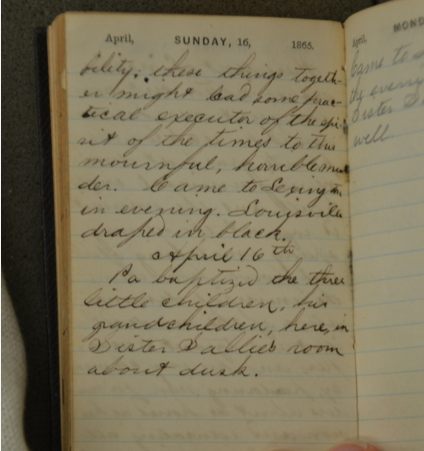 April, SUNDAY, 16, 1865.
bility; these things togeth-
er might lead some prac-
tical executor of the spi-
rit of the times to this
mournful, horrible mur
der. Came to Lexington
in evening. Louisville
draped in black.
April 16th
Pa baptized the three
little children, his
grandchildren, here, in
Sister Sallie's room
about dusk.
April, MOND
Came to
every
Sister
well